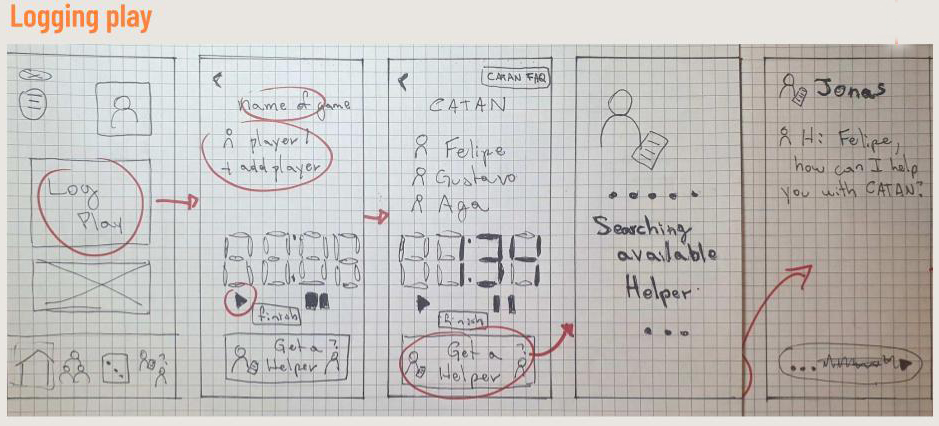 Logging play
Log
Play
name of game
player 1
+ add player
finish
Get a ?
Helper
CATAN FAQ
CATAN
Felipe
Gustavo
Aga
1:34
finish
Get a ?
Helper
.....
Searching
available
Helper
...
Jonas
Hi: Felipe,
how can I help
you with CATAN?
...